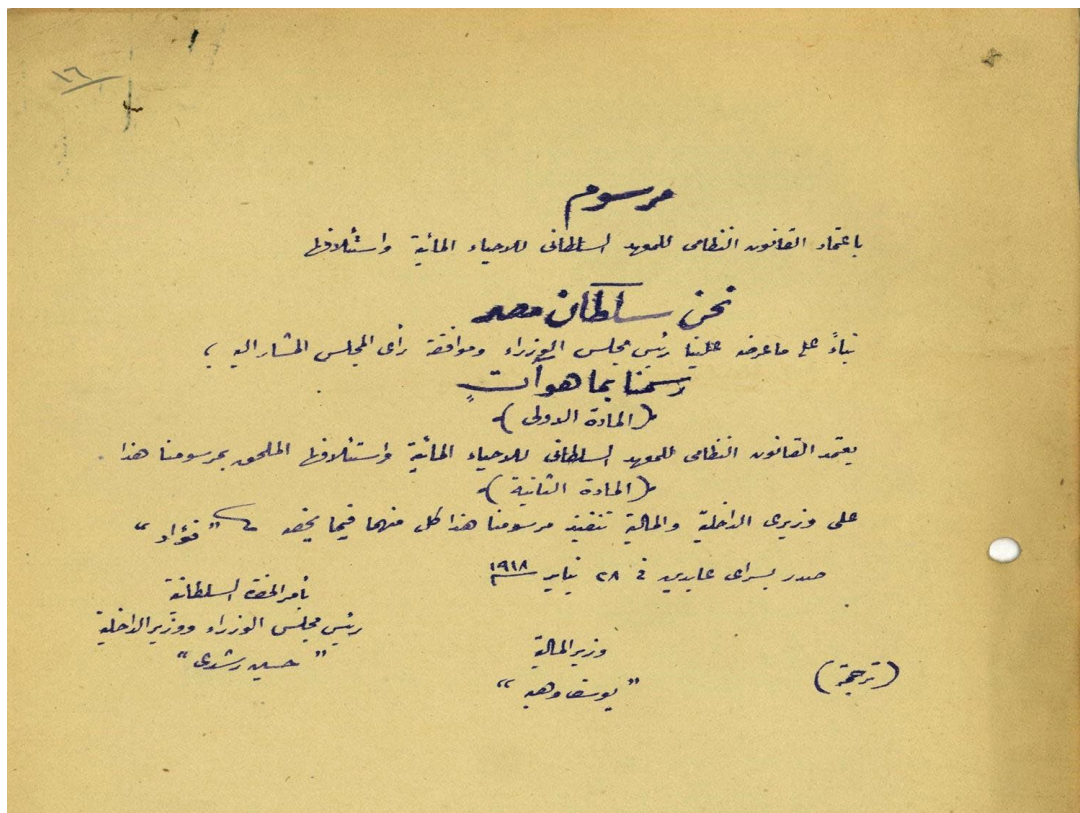 ١٦
مرسوم
باعتماد القانون النظامى للمعهد السلطانى للاحياء المائية واستئلافها
نحن سلطان مصر
بناءً على ما عرضه علينا رئيس مجلس الوزراء وموافقة رأى المجلس المشار اليه ،
رسمنا بما هو آتٍ
(المادة الاولى)
يعتمد القانون النظامى للمعهد السلطانى للاحياء المائية واستئلافها الملحق بمرسومنا هذا .
(المادة الثانية)
على وزيرى الداخلية والمالية تنفيذ مرسومنا هذا كل منهما فيما يخصه "فؤاد"
صدر بسراى عابدين فى ٢٨ يناير ١٩١٨
بأمر الحضرة السلطانية
رئيس مجلس الوزراء ووزير الداخلية
"حسين رشدى"
وزير المالية
"يوسف وهبه"
(ترجمة)